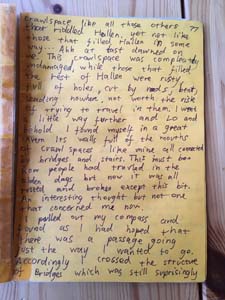 crawlspace like all those others 77
that riddled Hallen, yet not like
those that filled Hallen in some
way... Ahh at last dawned on
me. This crawlspace was completely
undamaged, while those that filled
the rest of Hallen were rusty
full of holes, cut by rods, bent,
leading nowhere, not worth the risk
of trying to travel in them. I went
a little way further and LO and
behold I found myself in a great
cavern. Its walls full of the mouths
of crawl spaces like mine all connected
by bridges and stairs. This must be
how people had traveled in the
olden days but now it was all
rusted and broken except this bit.
An interesting thought but not one
that concerned me now.
I pulled out my compass and
found as I had hoped that
there was a passage going
just the way I wanted to go.
Accordingly I crossed the structure
of Bridges which was still suprisingly